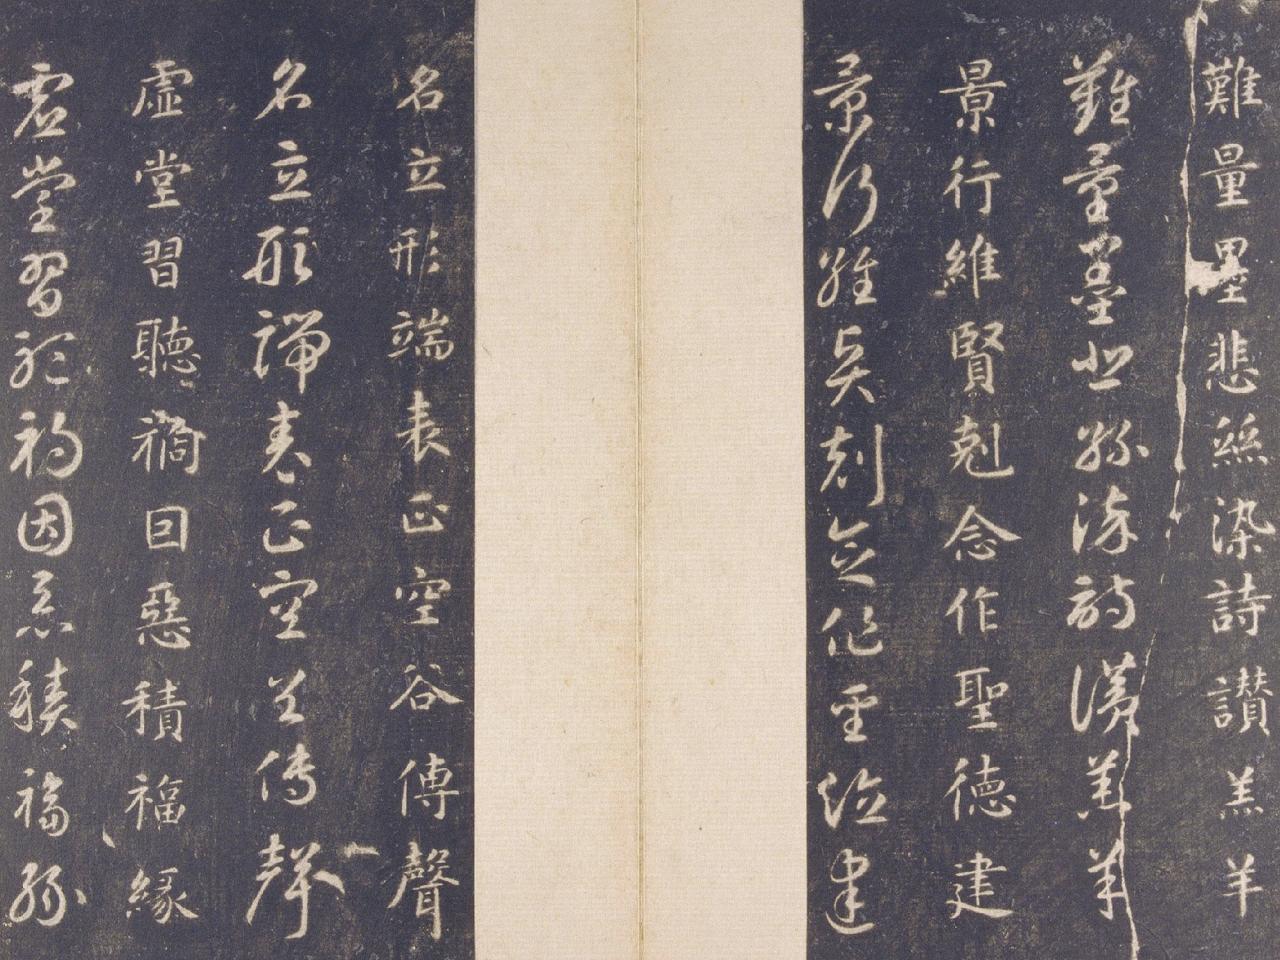 難量墨悲絲染詩讚羔羊
難量墨悲絲染詩讚羔羊
景行維賢尅念作聖德建
景行維賢剋念作聖德建
名立形端表正空谷傳聲
名立形端表正空谷傳聲
虛堂習聽禍因惡積福緣
虛堂習聽禍因惡積福緣